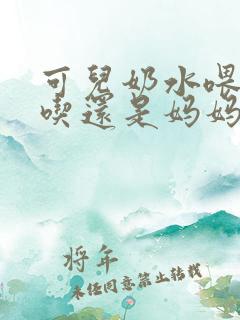 可兒奶水喂
喫還是妈妈
将年
未经同意禁止转载